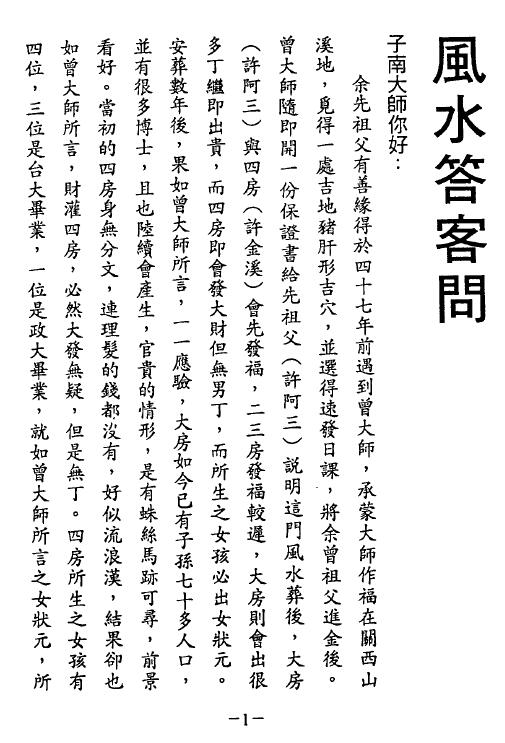 風水答客問
子南大師你好：
余先祖父有善緣得於四十七年前遇到曾大師，承蒙大師作福在關西山
溪地，覓得一處吉地豬肝形吉穴，並選得速發日課，將余曾祖父進金後。
曾大師隨即開一份保證書給先祖父（許阿三）說明這門風水葬後，大房
（許阿三）與四房（許金溪）會先發福，二三房發福較遲，大房則會出很
多丁繼即出貴，而四房即會發大財但無男丁，而所生之女孩必出女狀元。
安葬數年後，果如曾大師所言，一一應驗，大房如今已有子孫七十多人口，
並有很多博士，且也陸續會產生，官貴的情形，是有蛛絲馬跡可尋，前景
看好。當初的四房身無分文，連理髮的錢都沒有，好似流浪漢，結果卻也
如曾大師所言，財灌四房，必然大發無疑，但是無丁。四房所生之女孩有
四位，三位是台大畢業，一位是政大畢業，就如曾大師所言之女狀元，所
－1－